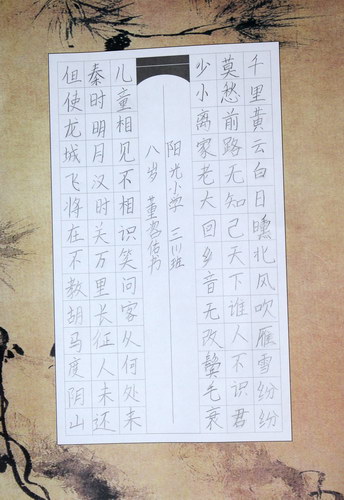 千里黄云白日曛北风吹雁雪纷纷
莫愁前路无知己天下谁人不识君
少小离家老大回乡音无改鬓毛衰
阳光小学 三(1)班
八岁 董书
儿童相见不相识笑问客从何处来
秦时明月汉时关万里长征人未还
但使龙城飞将在不教胡马度阴山